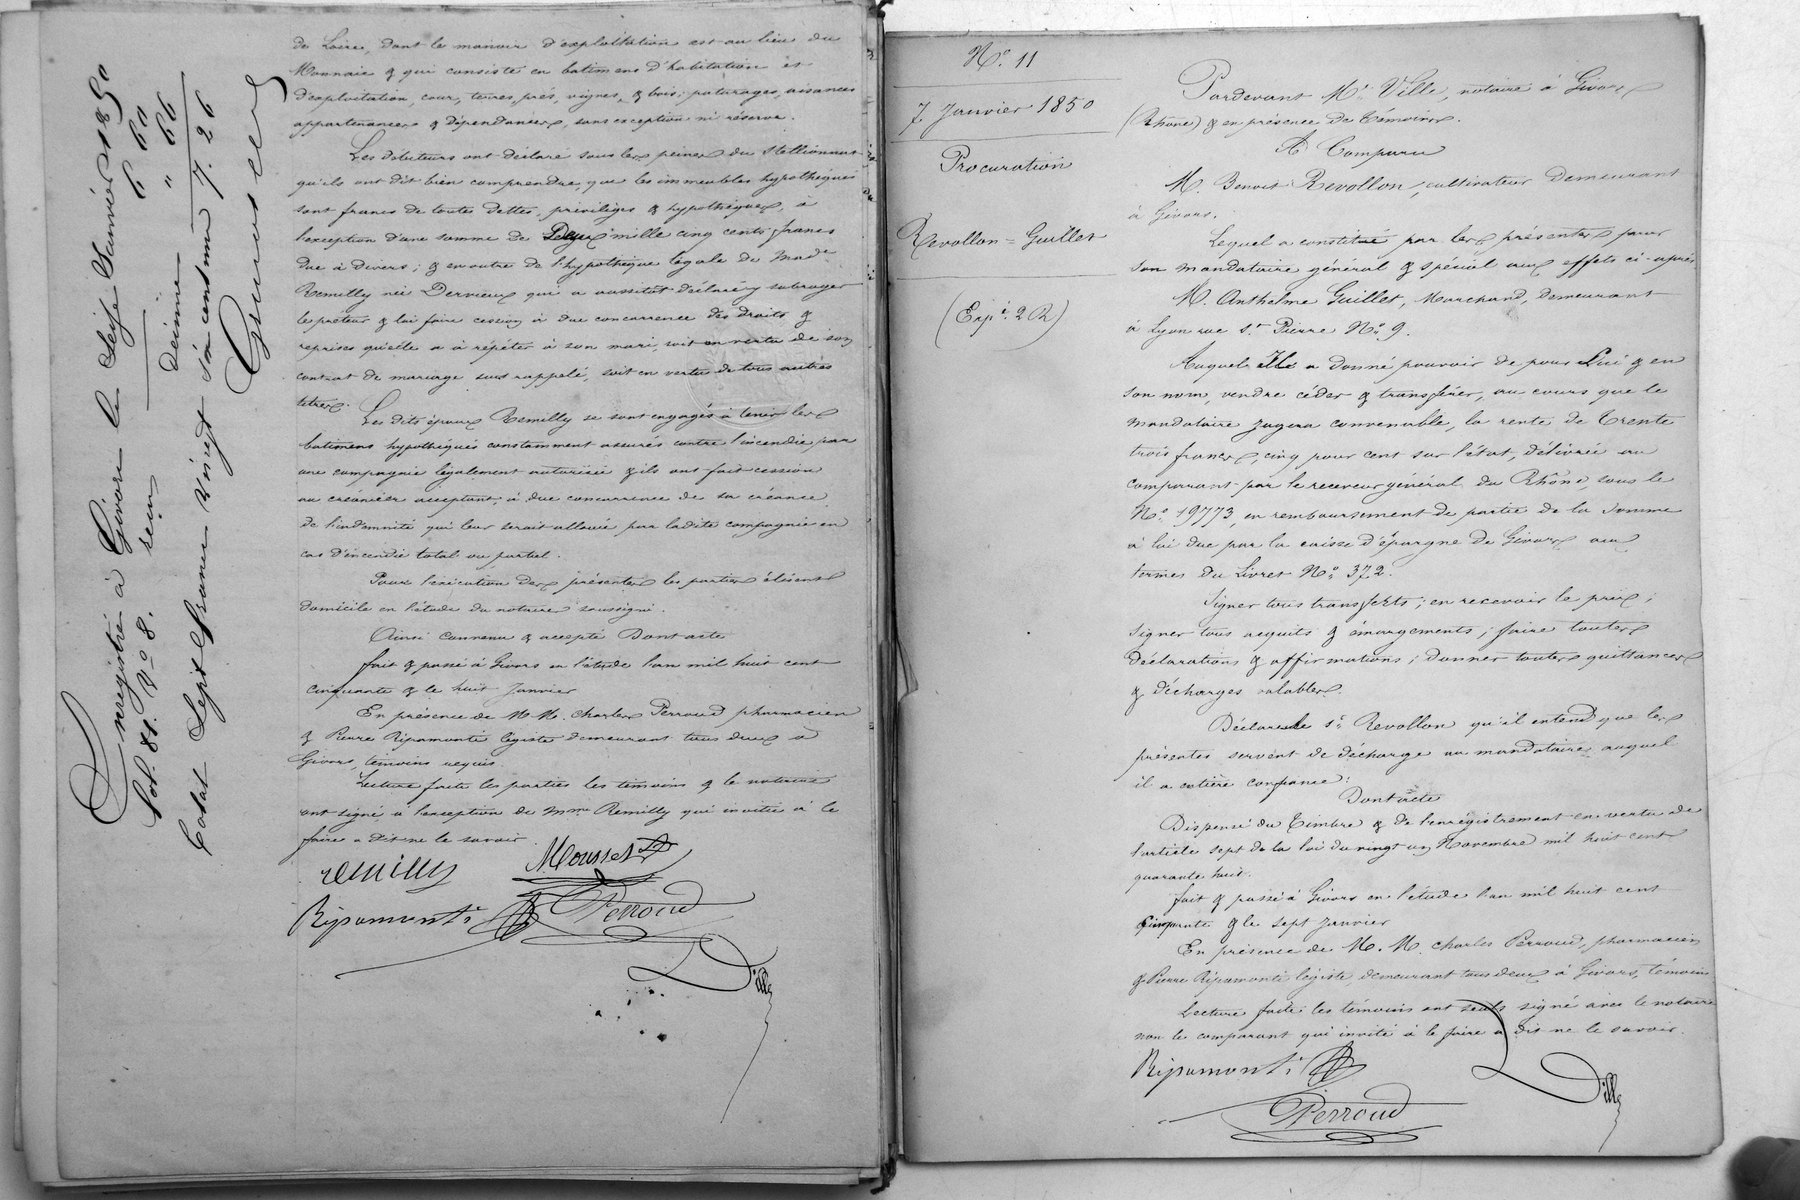 de Loire, dont le manoir d'exploitation est au lieu du
Monnaie & qui consiste en batimens d'habitation et
d'exploitation, cour, terres, prés, vignes, & bois, paturages, aisances
appartenances & dépendances, sans exception ni réserve.
Les débiteurs ont déclaré sous les peines du stellionnat
qu'ils ont dit bien comprendre, que les immeubles hypothéqués
sont francs de toutes dettes, priviléges & hypothéques, à
l'exception d'une somme de Deux mille cinq cents francs
due à divers ; & en outre de l'hypothéque légale de Made
Remilly née Dervieux qui a aussitôt déclaré y subroger
le prêteur & lui faire cession à due concurrence des droits &
reprises qu'elle a à répéter à son mari, soit en vertu de son
contrat de mariage sus rappelé, soit en vertu de tous autres
titres.
Les dits époux Remilly se sont engagés à tenir les
batimens hypothéqués constamment assurés contre l'incendie par
une compagnie légalement autorisée & ils ont fait cession
au créancier acceptant, à due concurrence de sa créance
de l'indemnité qui leur serait allouée par ladite compagnie en
cas d'incendie total ou partiel.
Pour l'exécution des présentes les parties élisent
domicile en l'étude du notaire soussigné.
Ainsi convenu & accepté Dont acte
fait & passé à Givors en l'étude l'an mil huit cent
cinquante & le huit Janvier
En présence de M. M. Charles Perroud pharmacien
& Pierre Ripamonti légiste demeurant tous deux à
Givors, témoins requis.
Lecture faite les parties les témoins & le notaire
ont signé à l'exception de Mme Remilly qui invitée à le
faire a dit ne le savoir
remilly Mousset
Ripamonti Perroud
Ville
Enregistré à Givors le Seize Janvier 1850
fol. 81. Vo 8. reçu 6 60
Décime " 66
Total Sept francs vingt six centimes 7. 26
No. 11
7 Janvier 1850
Procuration
Revollon = Guillet
(Expé. 2 R)
Pardevant Me. Ville, notaire à Givors
(Rhône) & en présence de témoins.
A Comparu
M. Benoit Revollon, cultivateur demeurant
à Givors.
Lequel a constitué par les présentes pour
son mandataire général & spécial aux effets ci-après
M. Anthelme Guillet, Marchand, demeurant
à Lyon rue St. Pierre No. 9.
Auquel il a donné pouvoir de pour Lui & en
son nom, vendre céder & transférer, au cours que le
mandataire jugera convenable, la rente de Trente
trois francs, cinq pour cent sur l'état, délivrée au
comparant par le receveur général du Rhône sous le
No. 19773, en remboursement de partie de la somme
à lui due par la caisse d'épargne de Givors aux
termes du Livret No. 372.
Signer tous transferts ; en recevoir le prix ;
signer tous acquits & émargements ; faire toutes
déclarations & affirmations ; donner toutes quittances
& décharges valables.
Déclare le Sr. Revollon qu'il entend que les
présentes servent de décharge au mandataire auquel
il a entière confiance.
Dont acte
Dispensé du Timbre & de l'enregistrement en vertu de
l'article sept de la loi du vingt un Novembre mil huit cent
quarante huit.
fait & passé à Givors en l'étude l'an mil huit cent
cinquante & le sept janvier
En présence de M. M. Charles Perroud, pharmacien
& Pierre Ripamonti légiste, demeurant tous deux à Givors, témoins
Lecture faite les témoins ont seuls signé avec le notaire
non le comparant qui invité à le faire a dit ne le savoir.
Ripamonti
Ville
Perroud